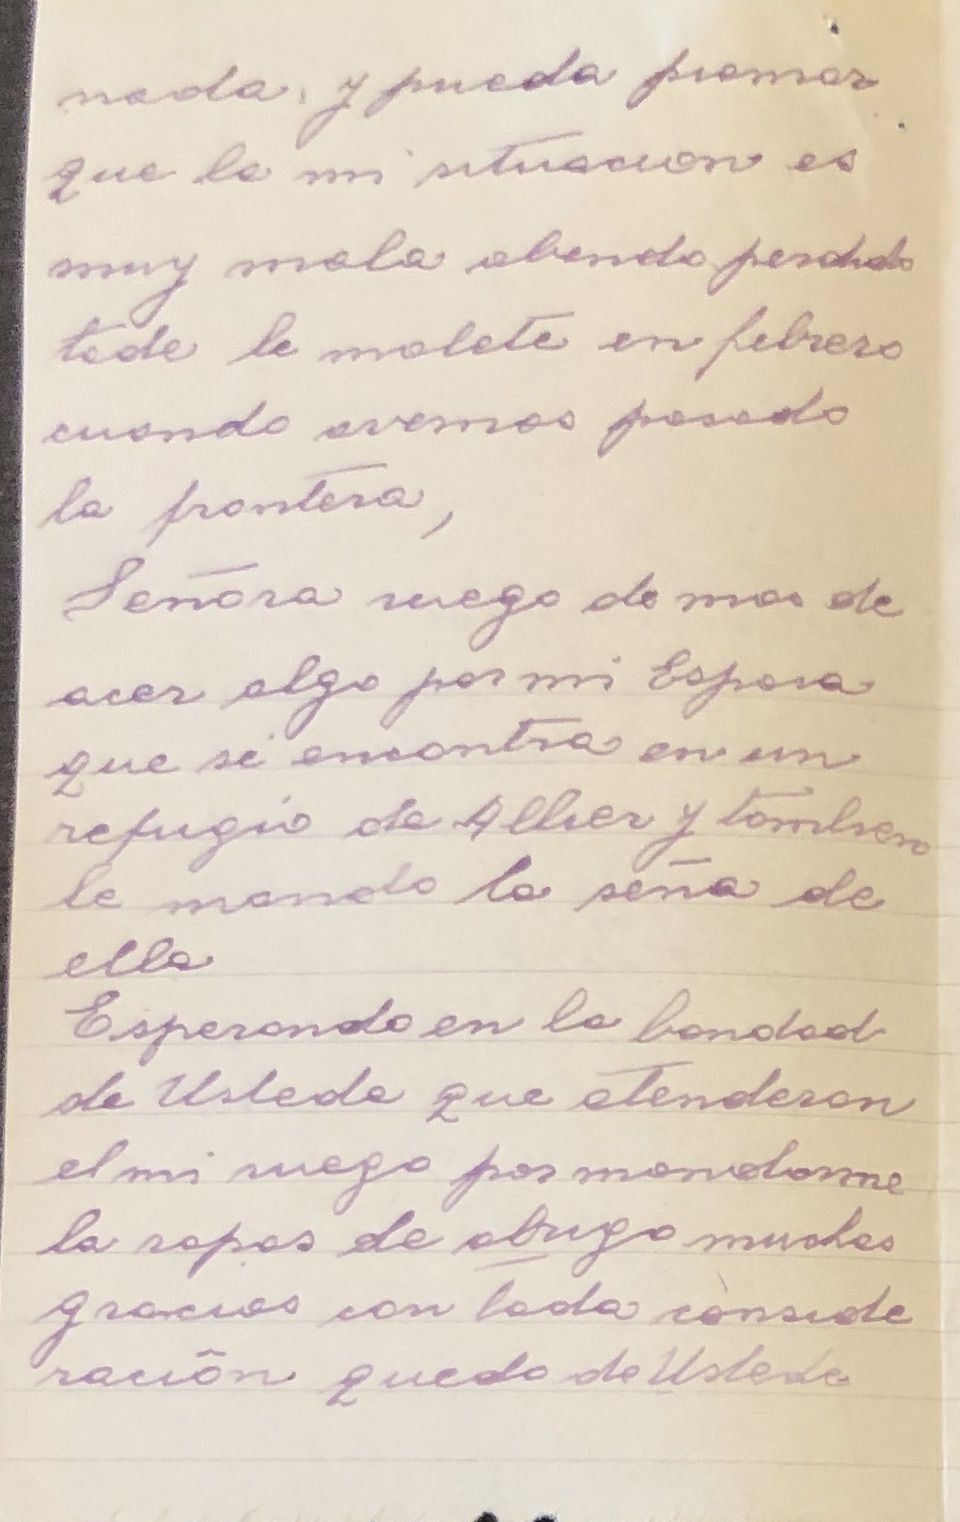 nada, y pueda piamar
que la mi situacion es
muy mala abendo perdido
tode le malete en febrero
cuando avemos pasado
la frontera,
Señora ruego de mas de
acer algo por mi Esposa
que se encontra en un
refugio de Allier y tambien
le mando la seña de
ella
Esperando en la bondad
de Ustede que atenderan
el mi ruego por mandarme
la ropas de abrigo muchas
gracias con toda conside
ración quedo de Ustede